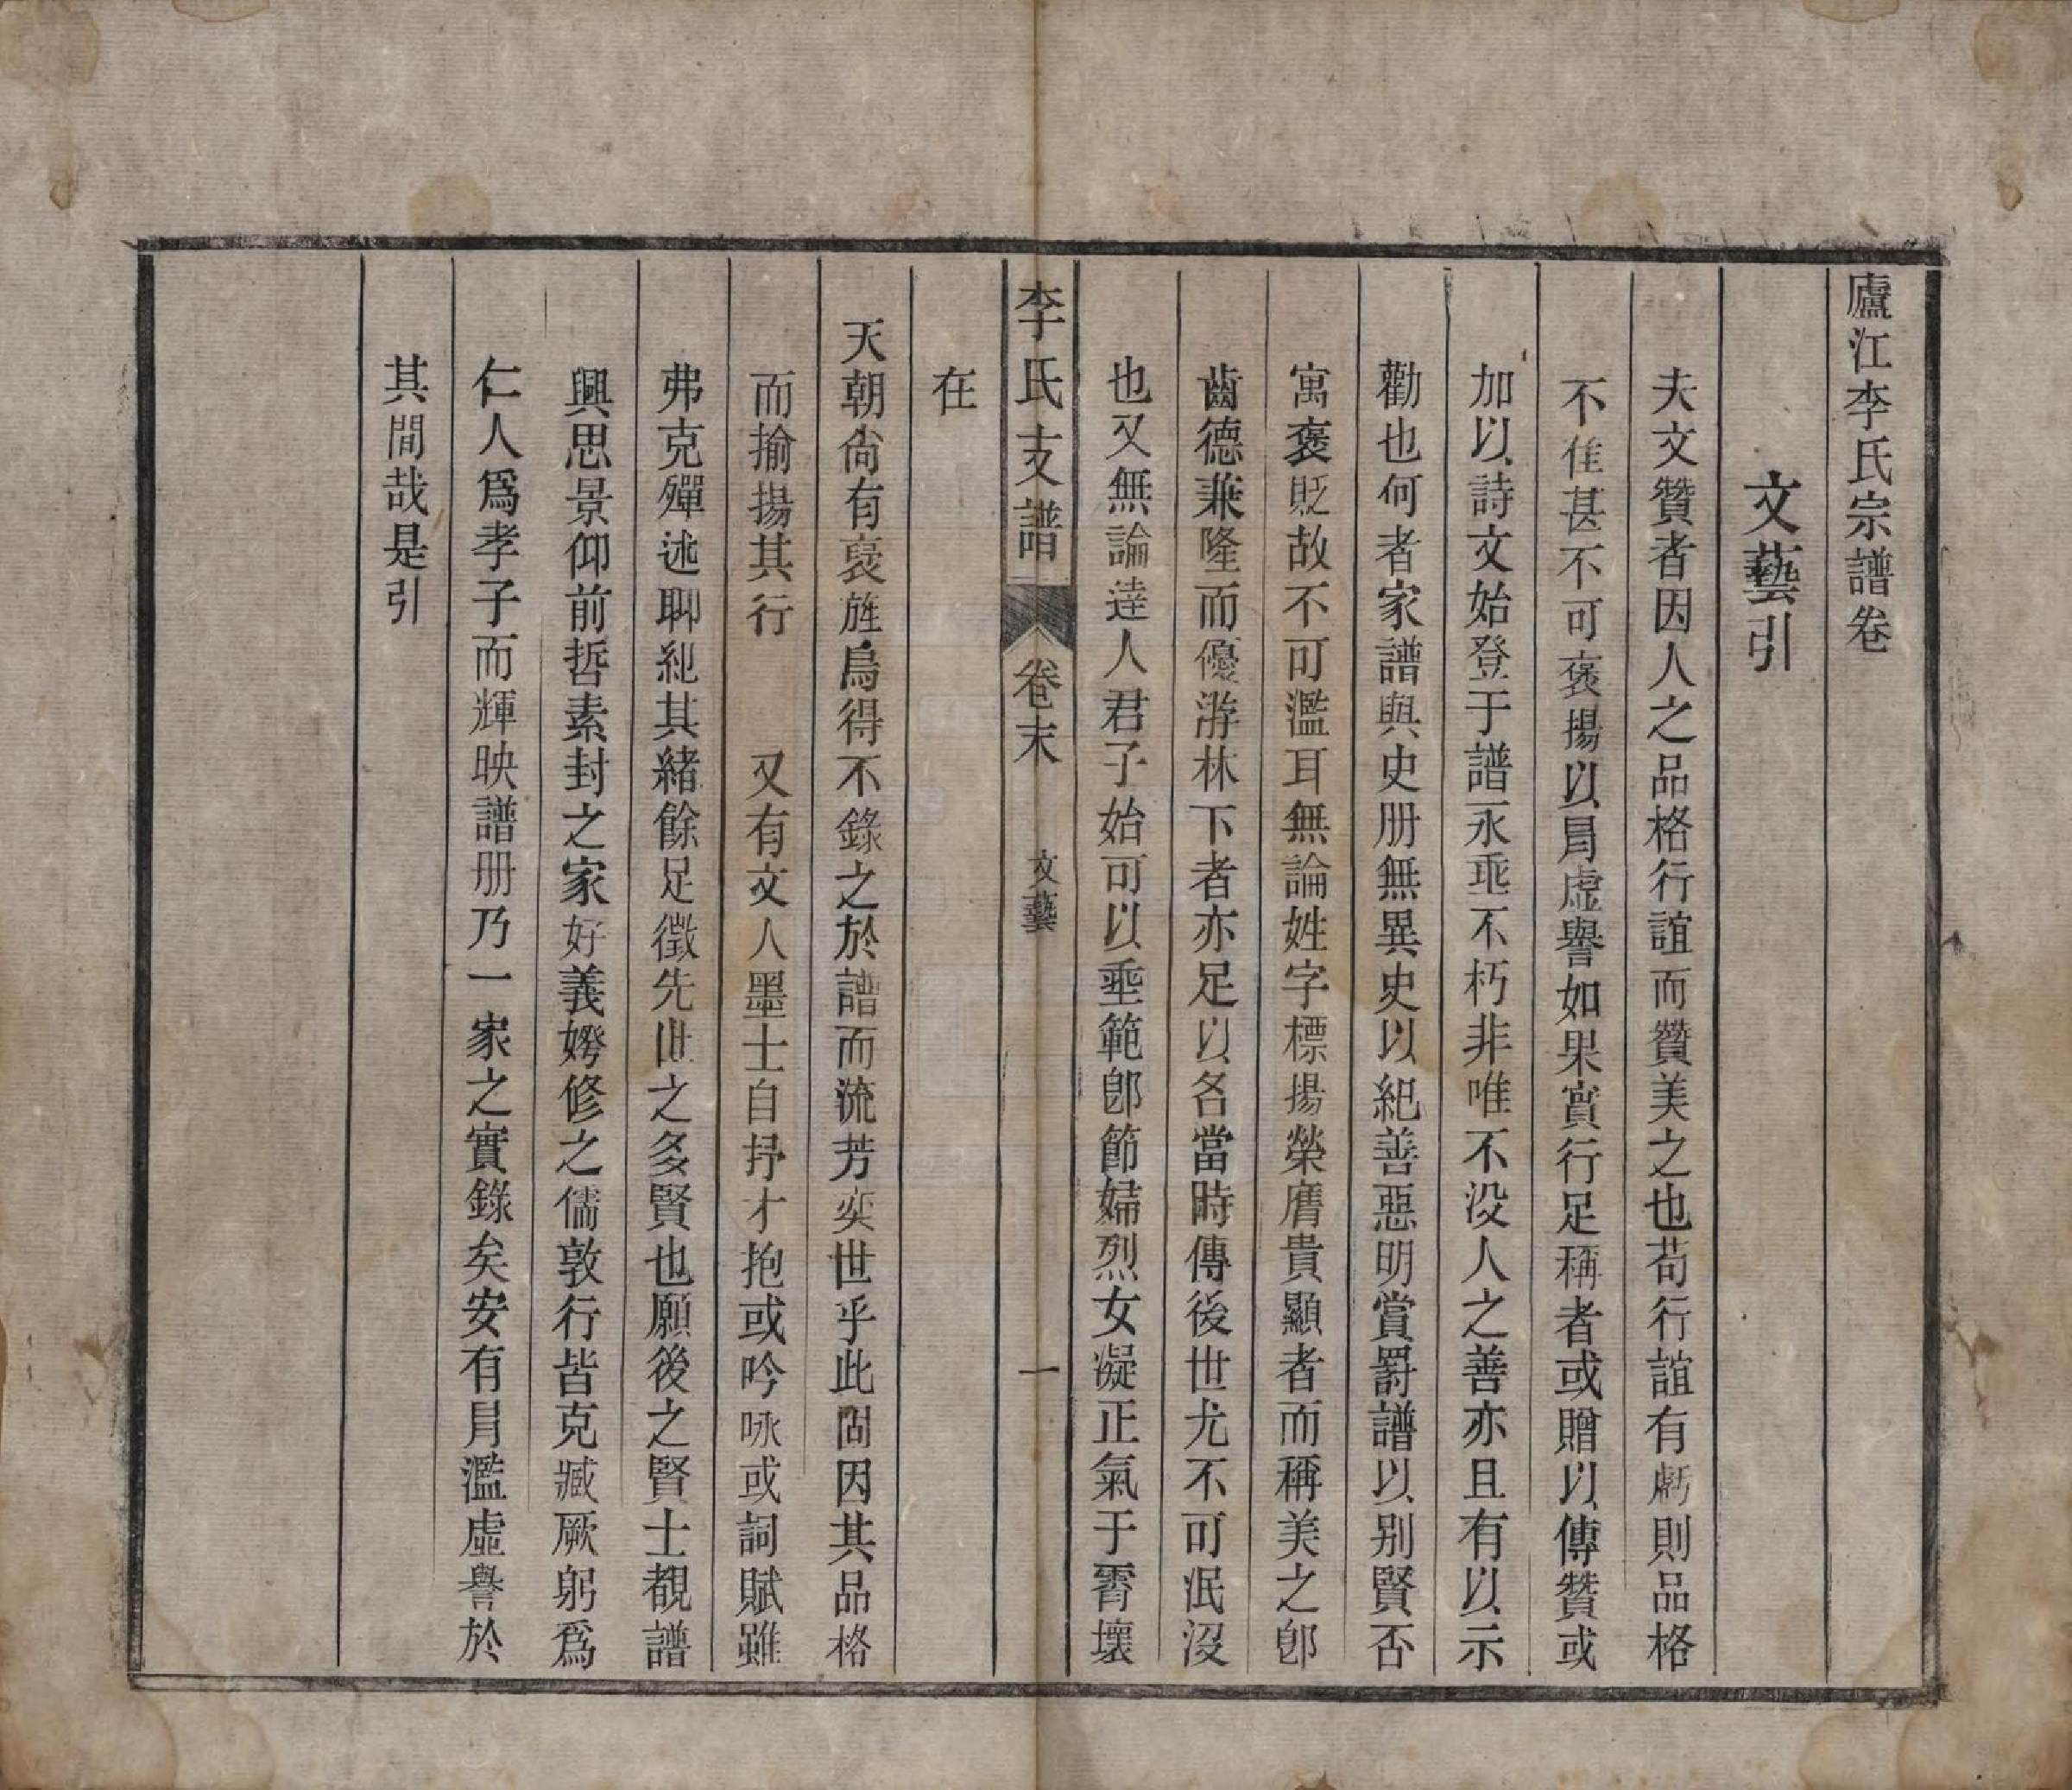 廬江李氏宗譜卷
文藝引
夫文贊者因人之品格行誼而贊美之也苟行誼有虧則品格
不佳甚不可褒揚以冐虛譽如果實行足稱者或贈以傳贊或
加以詩文始登于譜永垂不朽非唯不没人之善亦且有以示
勸也何者家譜與史册無異史以紀善惡明賞罰譜以别賢否
寓褒貶故不可濫耳無論姓字標揚榮膺貴顯者而稱美之卽
齒德兼隆而優游林下者亦足以名當時傳後世尤不可泯沒
也又無論達人君子始可以垂範卽節婦烈女凝正氣于霄壤
李氏支譜 卷末 文藝 一
在
天朝尙有襃旌烏得不錄之於譜而流芳奕世乎此固因其品格
而揄揚其行 又有文人墨士自抒才抱或吟咏或詞賦雖
弗克殫述聊紀其緒餘足徵先世之多賢也願後之賢士覩譜
興思景仰前哲素封之家好義嫪修之儒敦行皆克臧厥躬爲
仁人爲孝子而輝映譜册乃一家之實錄矣安有冐濫虛譽於
其間哉是引